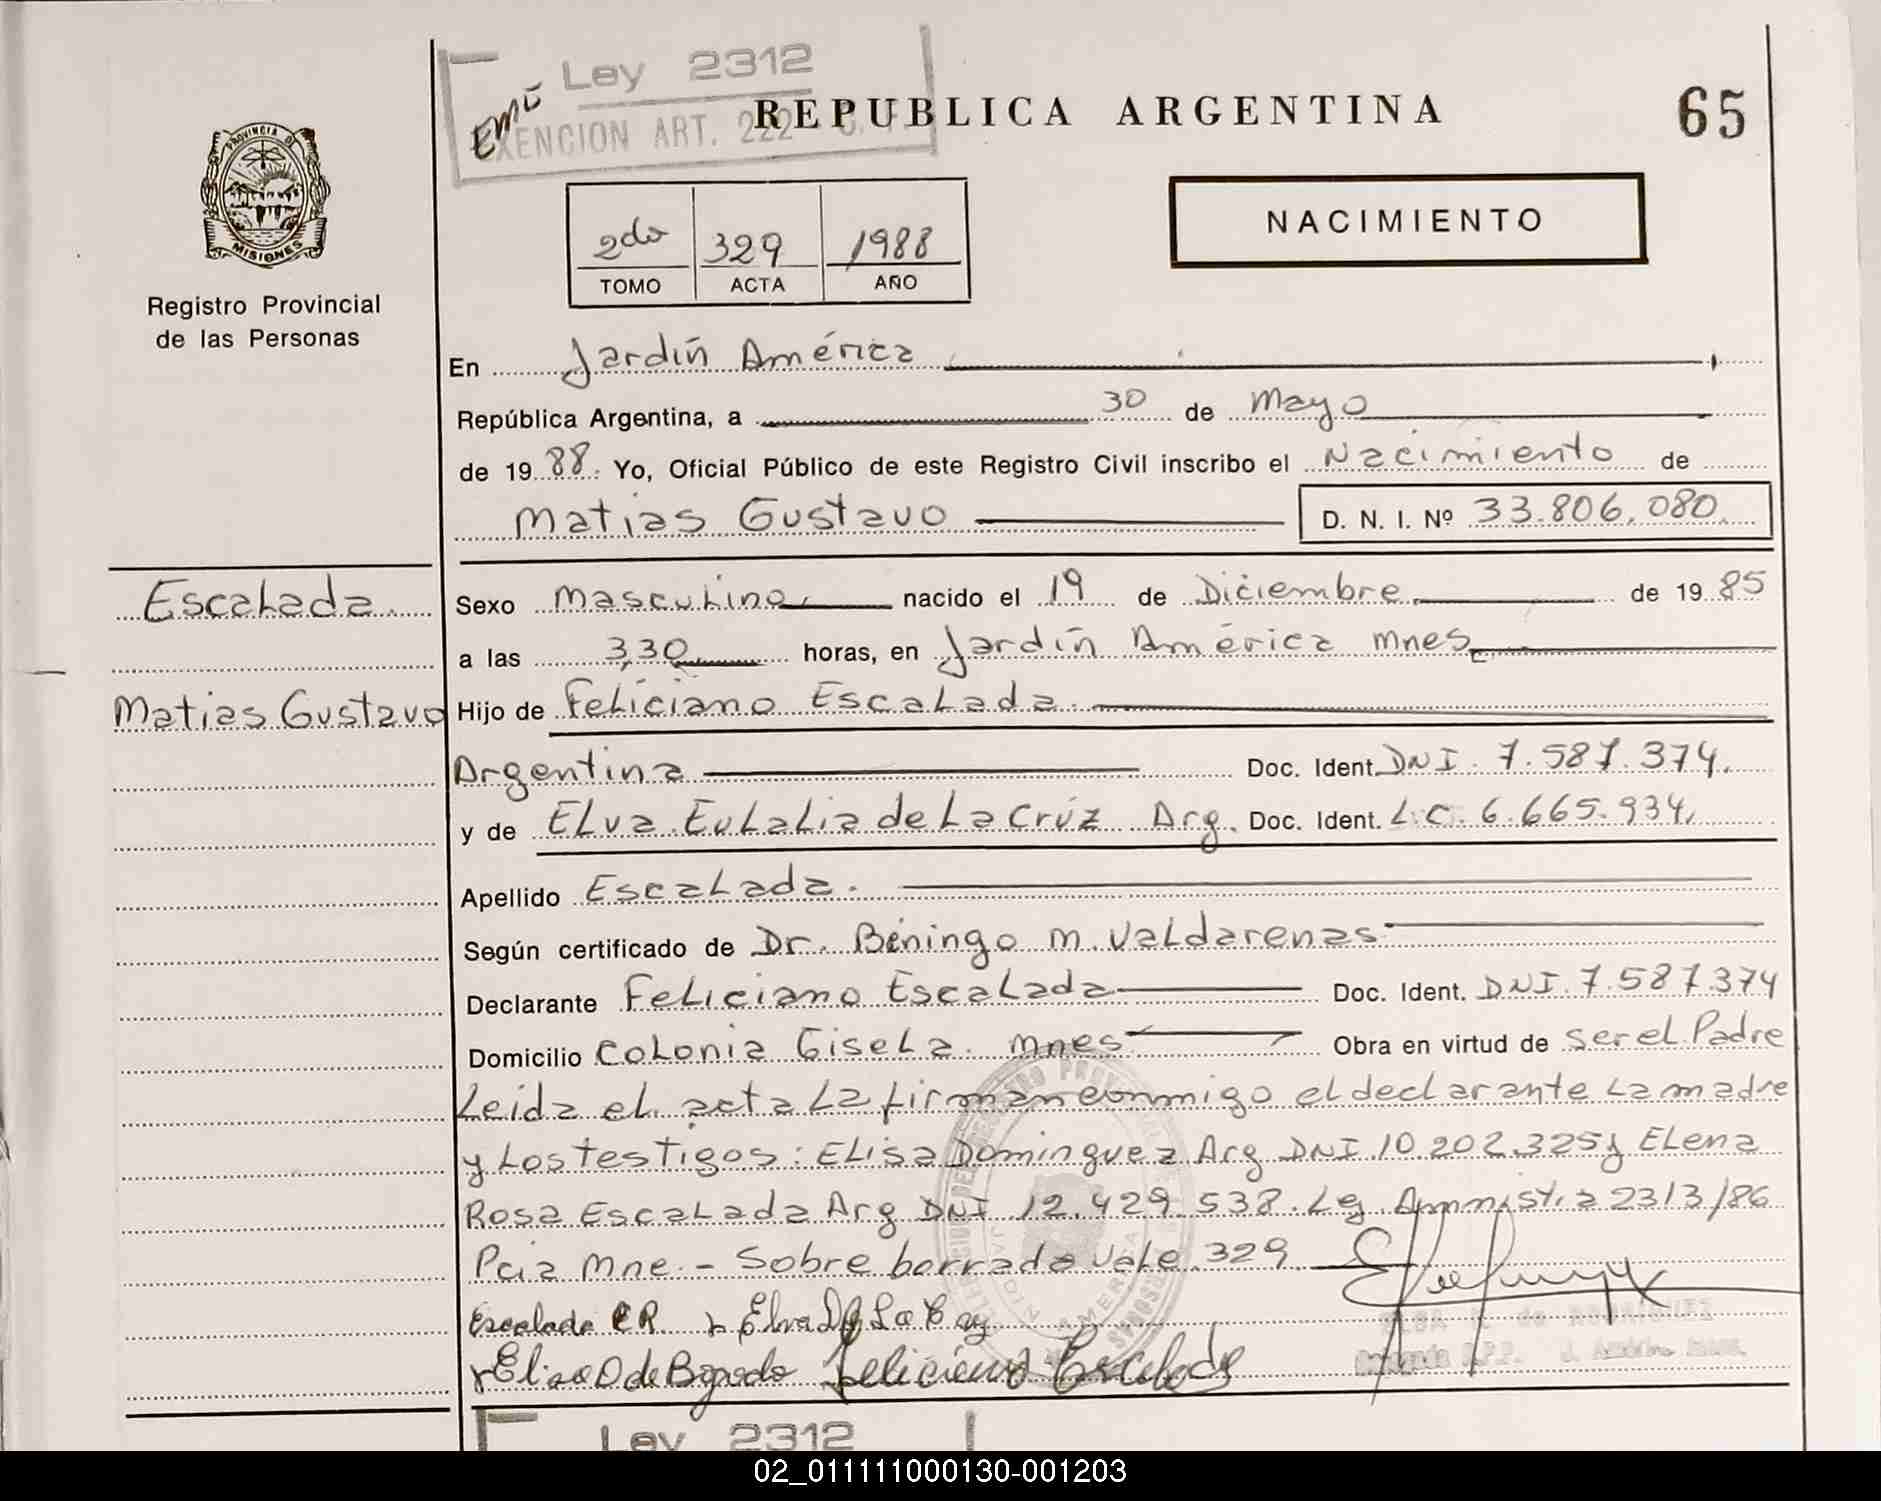 Ley 2312
EXENCION ART. 222
REPUBLICA ARGENTINA
65
PROVINCIA DE
MISIONES
Registro Provincial
de las Personas
2do 329 1988
TOMO ACTA AÑO
NACIMIENTO
En Jardín América
República Argentina, a 30 de Mayo
de 1988. Yo, Oficial Público de este Registro Civil inscribo el Nacimiento de
Matias Gustavo D. N. I. Nº 33.806.080.
Escalada.
Matias Gustavo
Sexo Masculino, nacido el 19 de Diciembre de 1985
a las 3,30 horas, en Jardín América Mnes
Hijo de Feliciano Escalada.
Argentina Doc. Ident. DNI. 7.587.374.
y de Elva Eulalia de La Cruz Arg. Doc. Ident. L.C. 6.665.934,
Apellido Escalada.
Según certificado de Dr. Beningo M. Valdarenas
Declarante Feliciano Escalada Doc. Ident. DNI. 7.587.374
Domicilio Colonia Gisela. Mnes Obra en virtud de ser el Padre
Leida el acta la firman conmigo el declarante la madre
y los testigos: Elisa Dominguez Arg DNI 10.202.325 y Elena
Rosa Escalada Arg DNI 12.429.538. Ley Amnistia 2313/86
Pcia Mne. - Sobre borrado vale 329
Escalada E R. Elva De La Cruz
Elisa D de Bogado Feliciano Escalada
Ley 2312
02_011111000130-001203